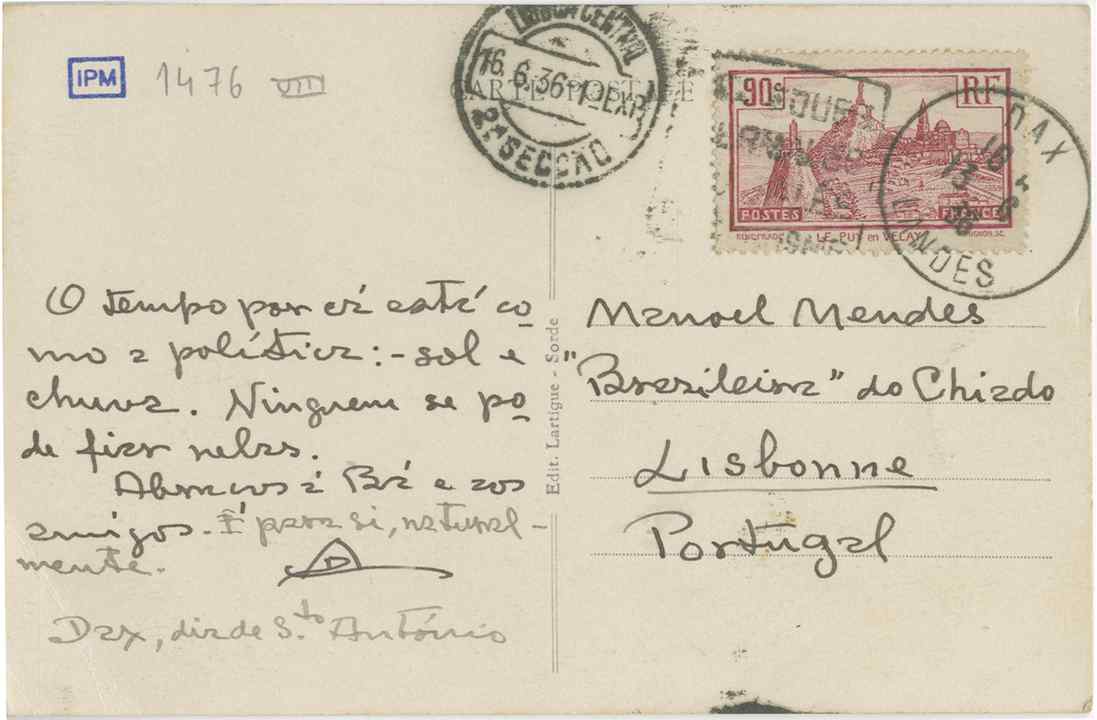 IPM 1476 VIII
CARTE POSTALE
LISBOA CENTRAL
16.6.36 - 1ª EXP.
2ª SECCÃO
90c RF
POSTES FRANCE
LE PUY en VELAY
DAX
18
13 6
36
LANDES
O tempo por cá está co-
mo a política: - sol e
chuva. Ninguem se po-
de fiar nelas.
Abraços á Bá e aos
amigos. E para si, natural-
mente.
Dax, dia de S.to António
Edit. Lartigue - Sorde
Manoel Mendes
"Brazileira" do Chiado
Lisbonne
Portugal